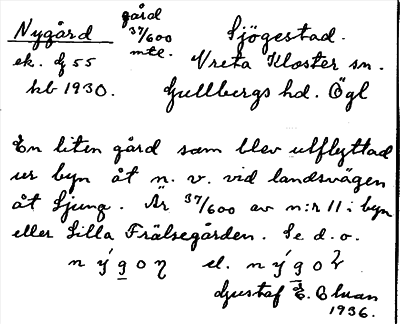 Nygård gård Sjögestad.
ek. G 55 37/600 mtl. Vreta Kloster sn.
kb 1930. Gullbergs hd. Ögl
En liten gård som blev utflyttad
ur byn åt n. v. vid landsvägen
åt Ljung. Är 37/600 av n:r 11 i byn
eller Lilla Frälsegården. Se d. o.
Gustaf E. Bluan
1936.